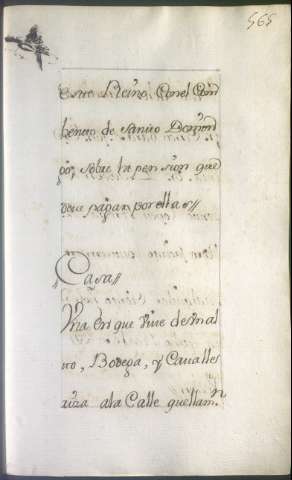 565
este Vicino, Con el Com
bento de Santto Domin
go, sobre la pension que
deve pagar por ella=//
"Casa//
Vna en que Vive de sv mal
tto, Bodega, y Cavalles
riza a la Calle que llam.n